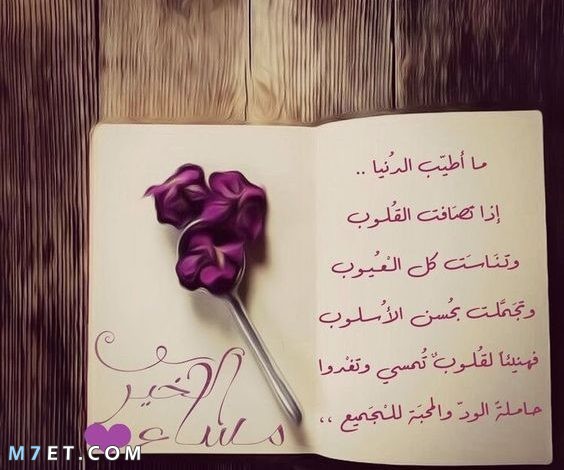 ما أطيّب الدُنيا ..
إذا تصَافت القُلوب
وتنَاسَت كل العْيُوب
وتجَمَّلت بحُسن الأُسلوب
فهنيئاً لقُلوبٌ تُمسي وتغْدوا
حاملةً الودّ والمحبَة للنْجَميع ،،
مساء الخير
M7ET.COM